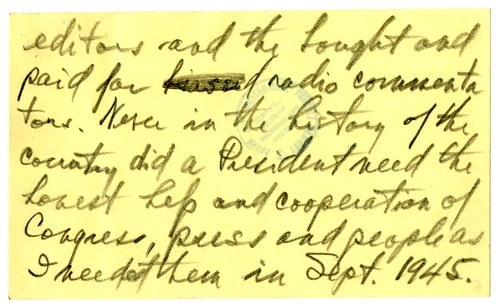 editors and the bought and
paid for radio commenta
tors. Never in the history of the
country did a President need the
honest help and cooperation of
Congress, press and people as
I needed them in Sept. 1945.